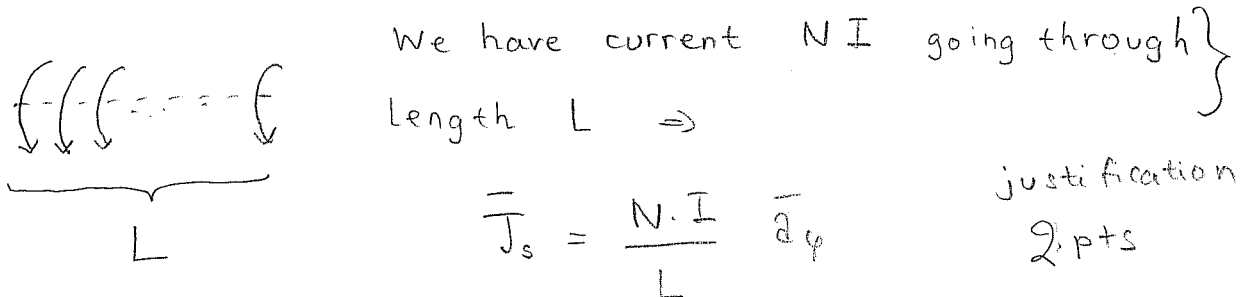 We have current N I going through }
length L ⇒
L
J̄s = N·I / L āφ
justification
2 pts